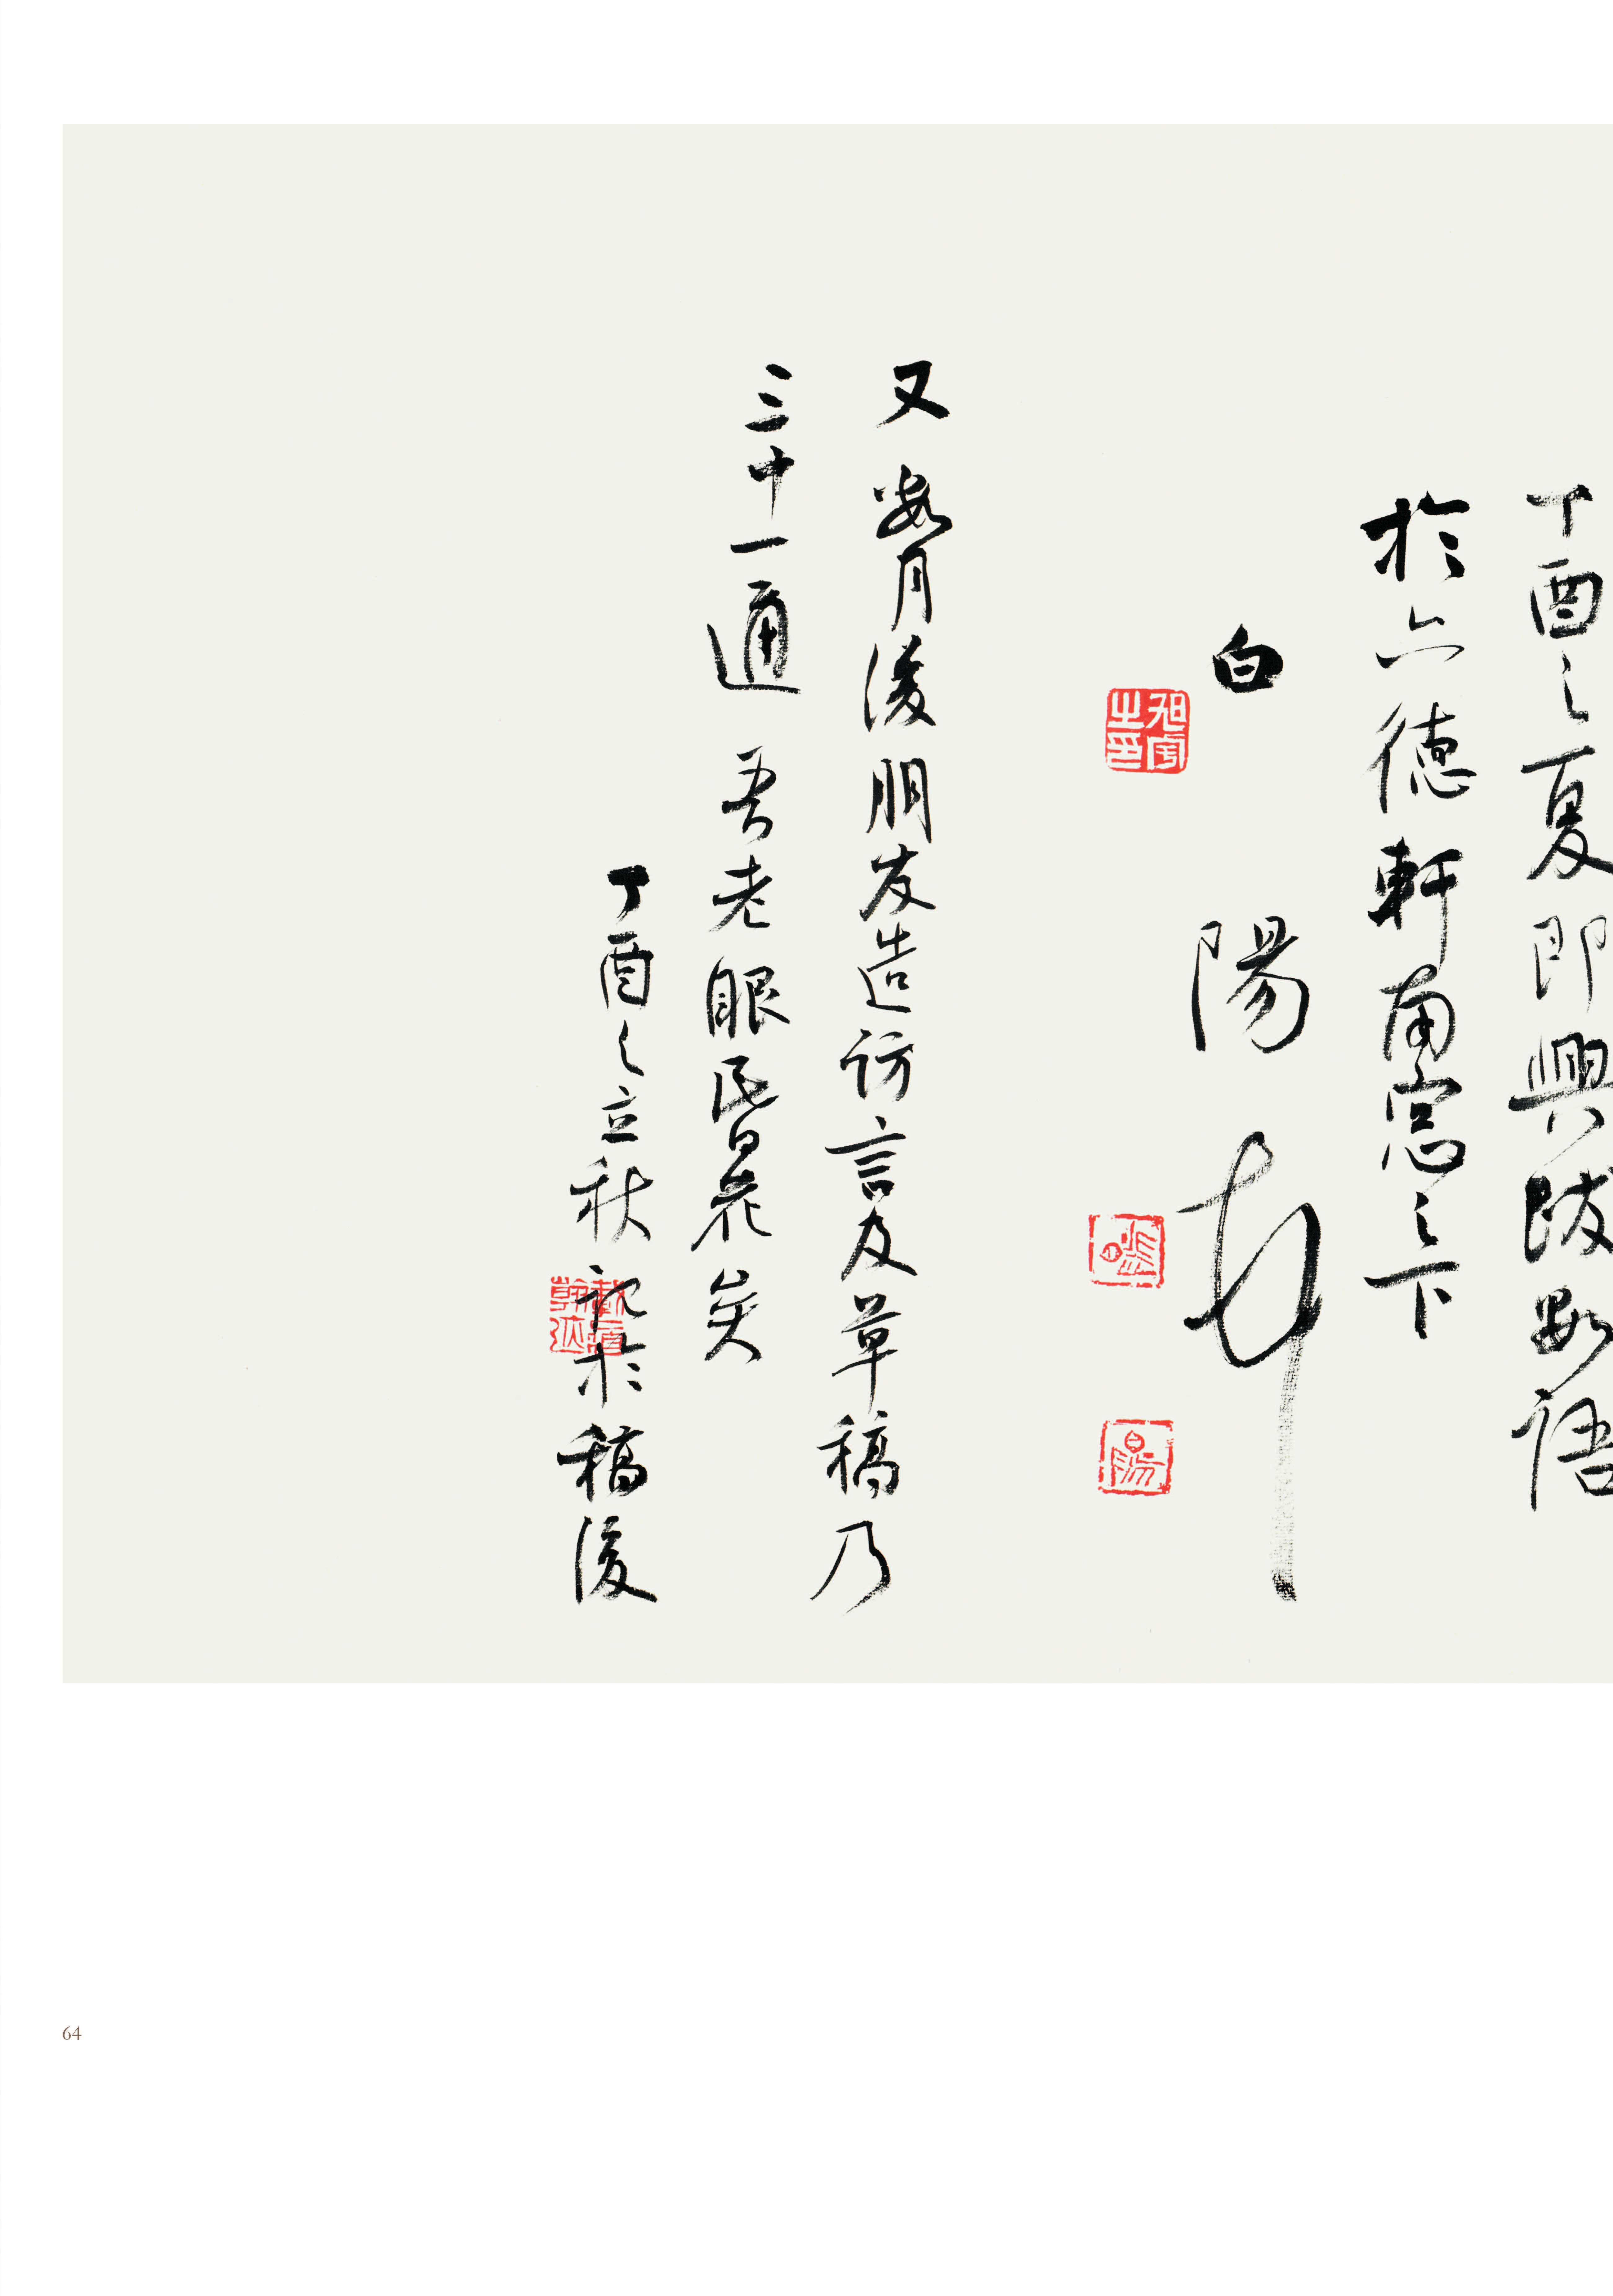 丁酉之夏即興跋數語
於六德軒南窓之下
白陽
白陽
又數月後朋友造訪言及草稿乃
三中一通 吾老眼昬花矣
丁酉之立秋記於稿後
64